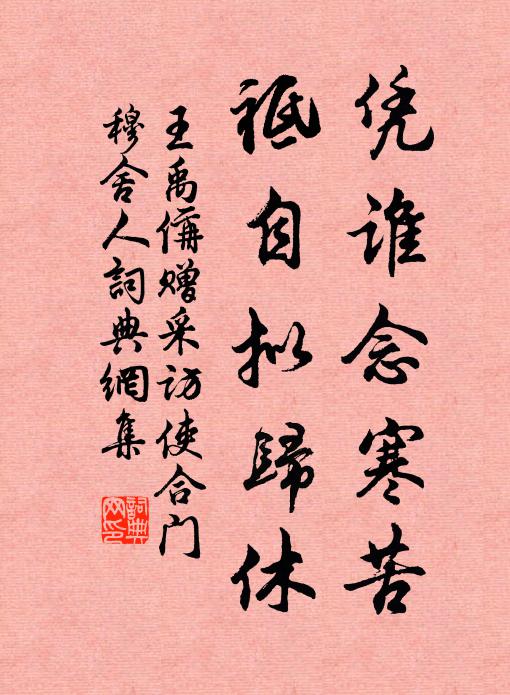 凭谁念寒苦
祗自拟歸休
王禹偁赠采访使合门
穆舍人詞典網集
詞典网印